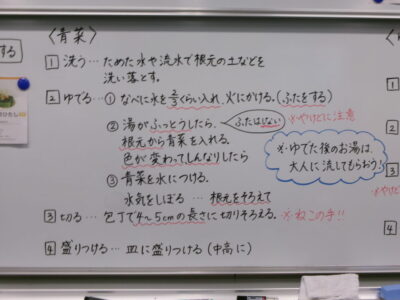 する
〈青菜〉
1 洗う… ためた水や流水で根元の土などを
洗い落とす。
2 ゆでる… ① なべに水を2/3くらい入れ、火にかける。(ふたをする)
② 湯がふっとうしたら、 ふたはしない ※やけどに注意
根元から青菜を入れる。
色が変わってしんなりしたら
③ 青菜を水につける。
水気をしぼる… 根元をそろえて
※ゆでた後のお湯は、
大人に流してもらおう!
3 切る… 包丁で4~5cmの長さに切りそろえる。 ※ねこの手!!
4 盛りつける… 皿に盛りつける(中高に)
1
2
3
※やけど
4